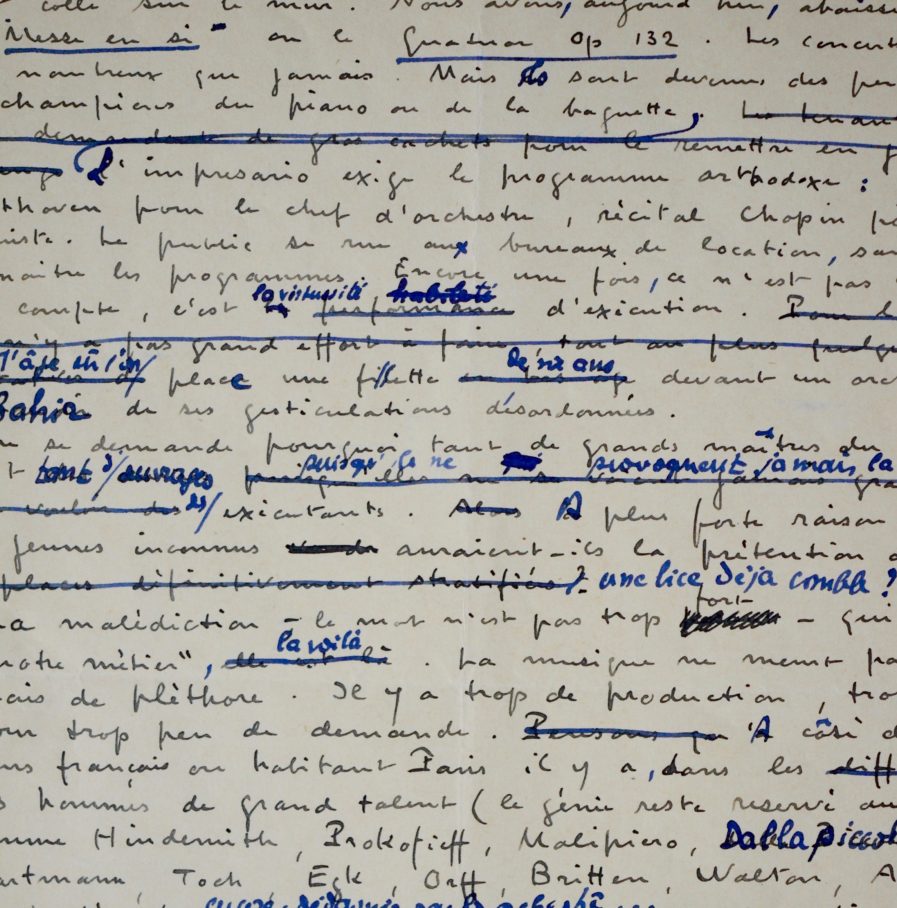 collé sur le mur. Nous avons, aujourd'hui, abaissé
Messe en si" ou le Quatuor Op 132. Les concert
nombreux que jamais. Mais ils sont devenus des per
champions du piano ou de la baguette. Les tenan
de gros cachets pour le remettre en
L'impresario exige le programme orthodoxe :
thoven pour le chef d'orchestre, récital Chopin p
niste. Le public se rue aux bureaux de location, san
naître les programmes. Encore une fois, ce n'est pas
la virtuosité habileté
compte, c'est performance d'exécution. Pour l
n'y a pas grand effort à faire, tout au plus quelqu
l'âge de six ans
place une fillette devant un orc
de ses gesticulations désordonnées.
se demande pourquoi tant de grands maîtres du
puisqu' ne provoquent jamais la
t tant d'ouvrages puisqu'elles ne se
des exécutants. Alors A plus forte raison
jeunes inconnus auraient-ils la prétention
places définitivement stratifiées? une lice déjà comble ?
fort
a malédiction - le mot n'est pas trop - qui
la voilà
notre métier", elle est là. La musique ne meurt pa
ais de pléthore. Il y a trop de production, tro
our trop peu de demande. Pensons qu' A côté d
ns français ou habitant Paris il y a, dans les diff
s hommes de grand talent (le génie reste réservé au
mme Hindemith, Prokofieff, Malipiero, Dallapiccol
artmann, Toch, Egk, Orff, Britten, Walton, A